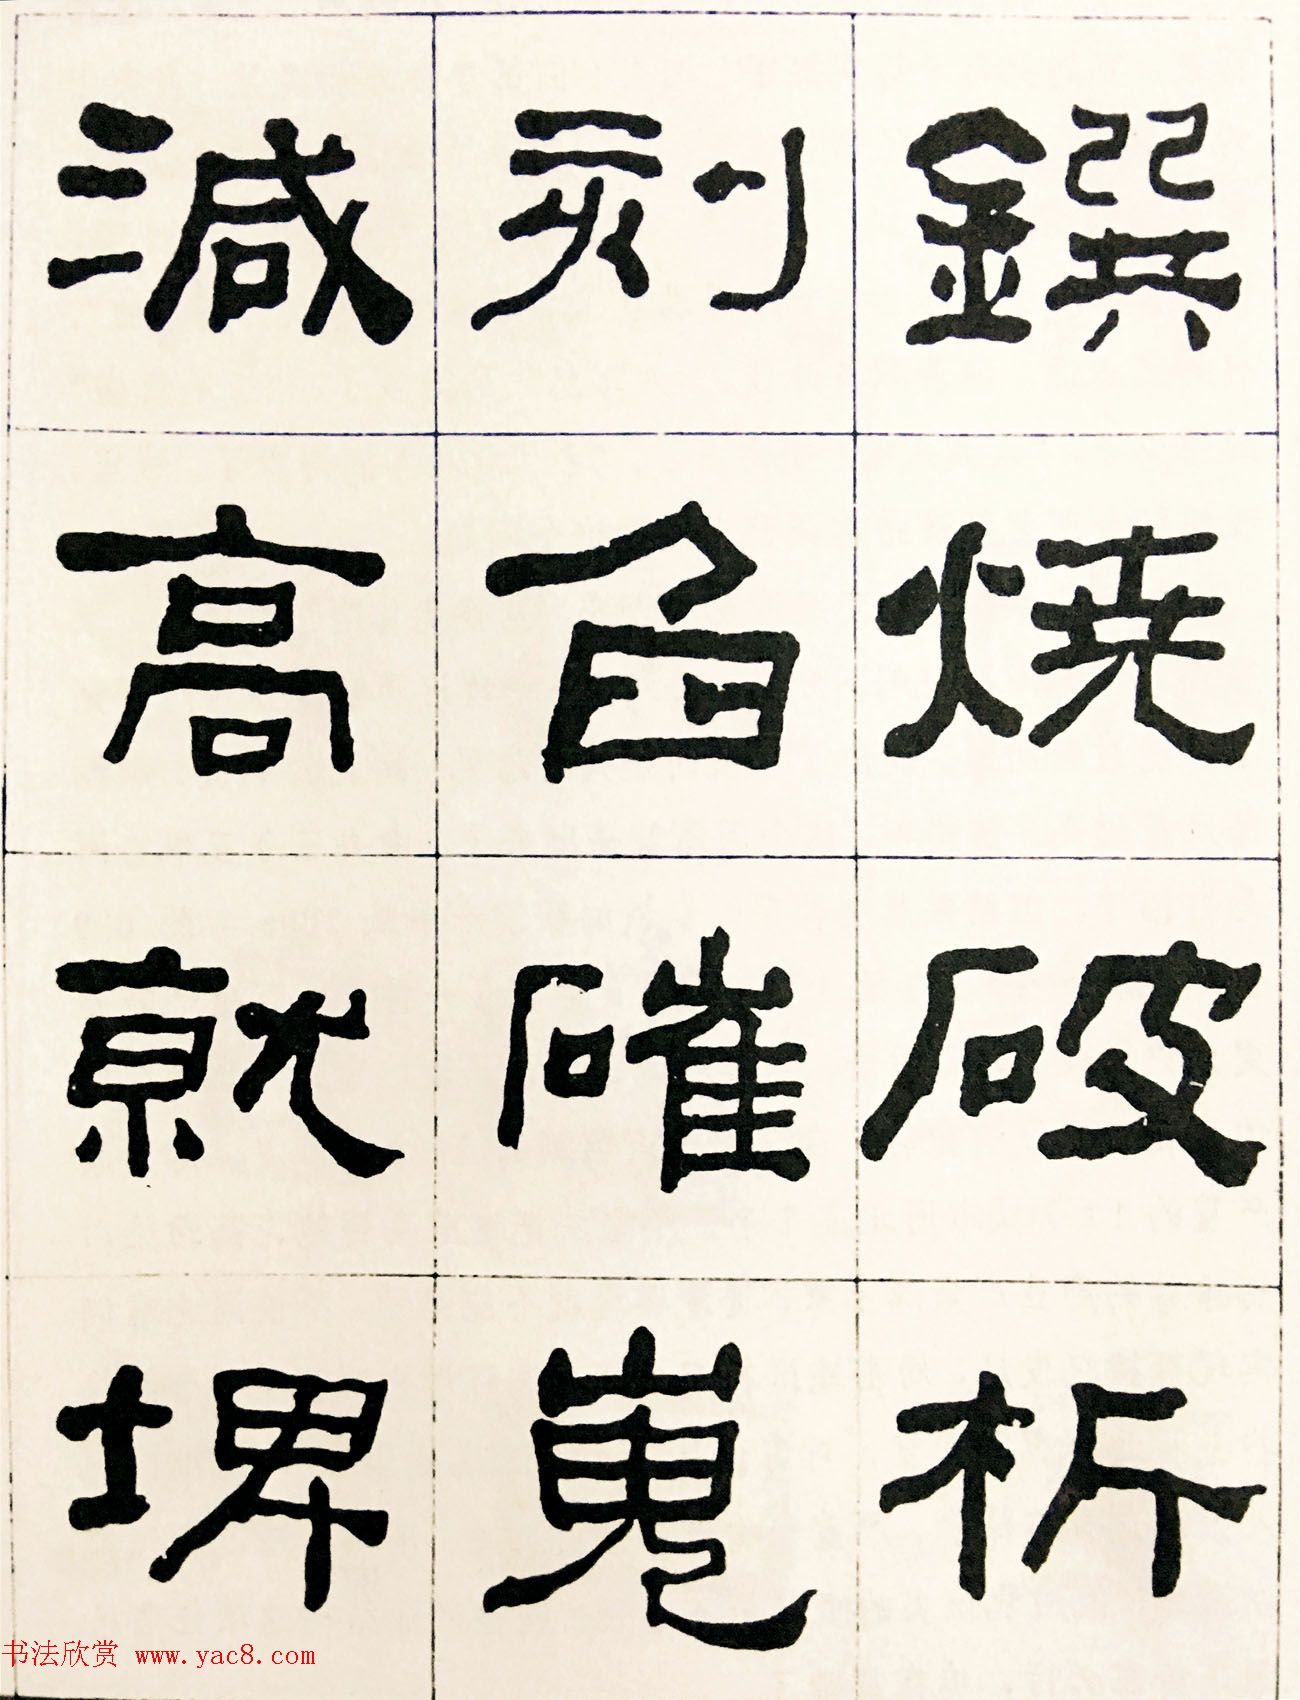 鐉燒破析
刻臽磪嵬
減高就埤
书法欣赏 www.yac8.com